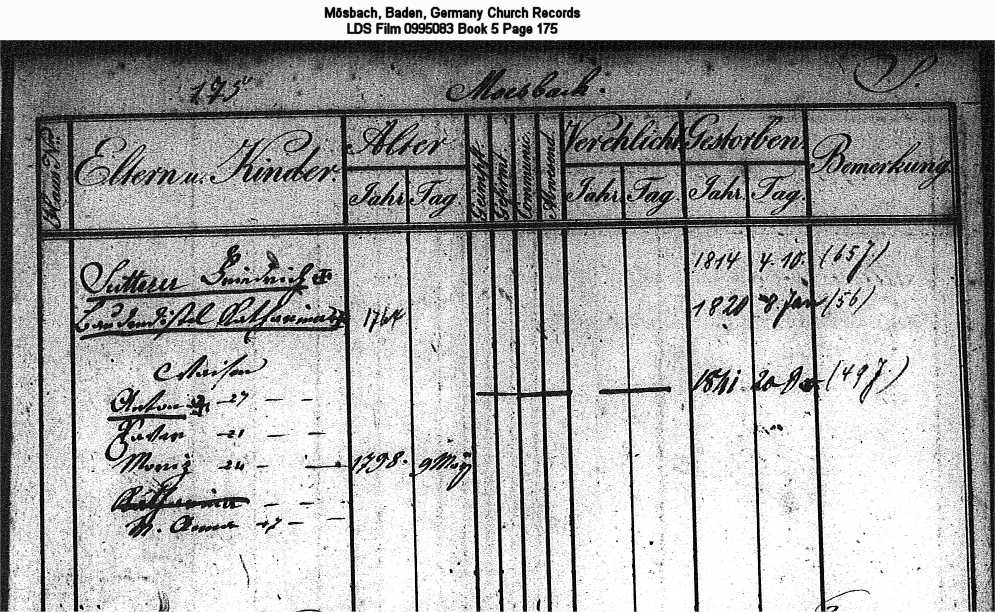 Mösbach, Baden, Germany Church Records
LDS Film 0995083 Book 5 Page 175
175 Moesbach. S.
Haus Nr. Eltern u. Kinder. Alter Gefirmt Communic. Abwesend Verehlicht Gestorben. Bemerkung.
Jahr Tag Jahr. Tag. Jahr. Tag.
Sutterer Friedrich 1814 4. 10. (65 J)
Katharina 1764 1820 8 Jan (56)
Waisen
Anton 27 – – 1841 20 (49 J.)
21 – –
Moniz 24 – – 1798. 9 May
Katharina – –
M. Anna 17 – –